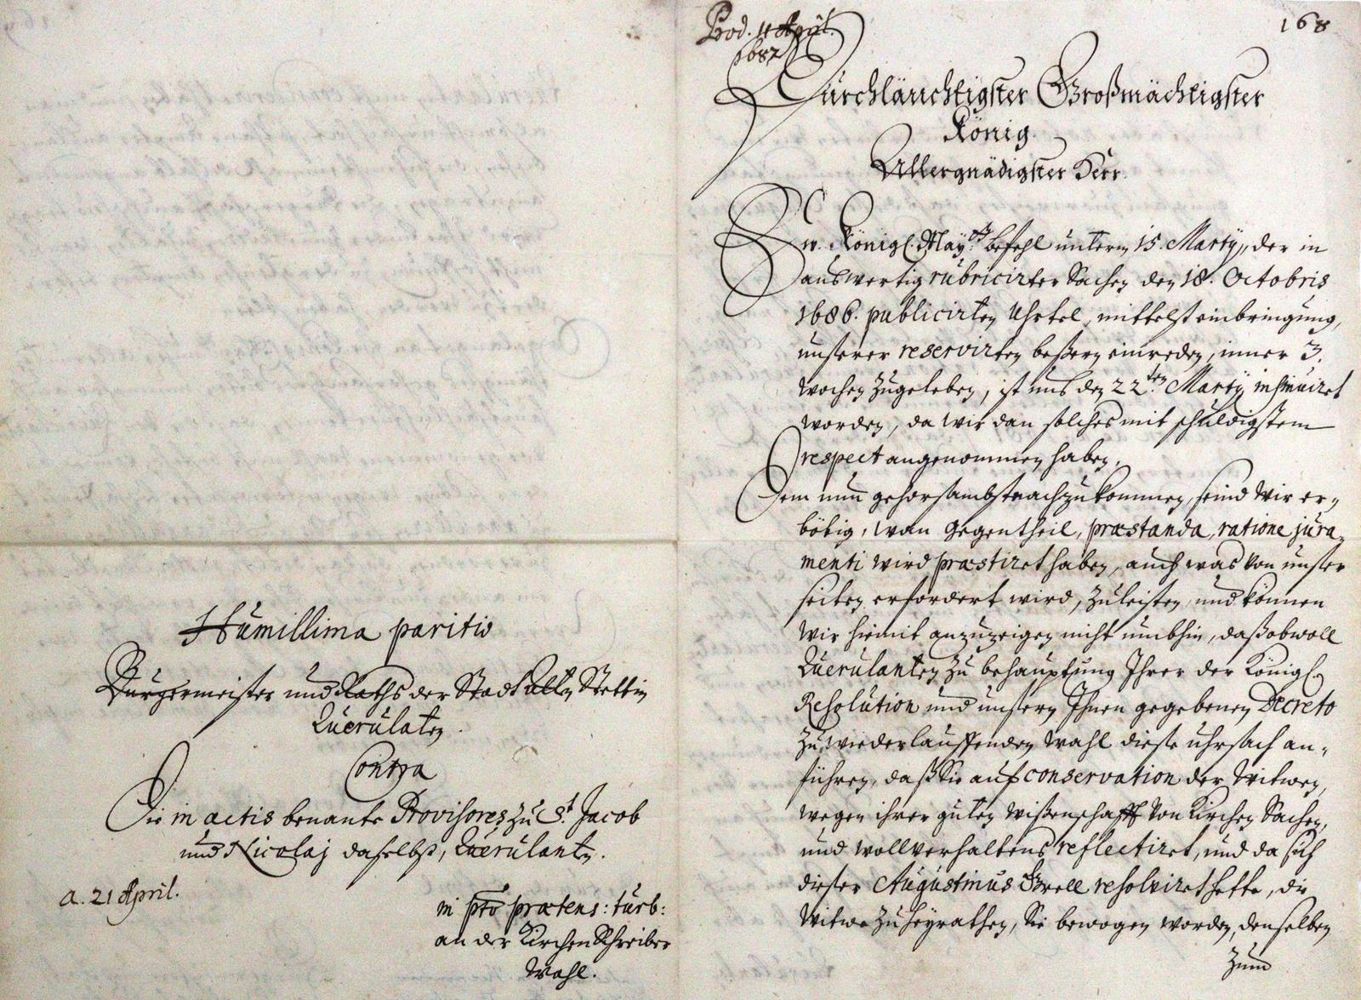 Humillima paritio
Bürgermeister und Raths der Stadt Alten Stettin
Querulaten.
Contra
Die in actis benante Provisores zu St. Jacob
und Nicolaj daselbst, Querulanten.
a. 21 April.
in pto prætens: turb:
an der Kirchen Schreiber
Wahl.
Prod. 11 April.
1687
168
Durchläuchtigster Großmächtigster
König
Allergnädigster Herr.
Ew. Königl. Maytt befehl unterm 15. Martij, der in
auswertig rubricirter Sachen den 18. Octobris
1686. publicirten Uhrtel, mittelst einbringung,
unserer reservirten beßern einreden, inner 3.
wochen zugeleben, ist uns den 22ten Martij insinuiret
worden, da wir dan solches mit schuldigstem
respect angenommen haben.
Dem nun gehorsambst nachzukommen, seind wir er-
bötig, wan Gegentheil, præstanda, ratione jura-
menti wird præstiret haben, auch was von unser
seiten erfordert wird, zu leisten, und können
wir hiemit anzuzeigen nicht umbhin, daß obwoll
Querulanten zu behauptung Ihrer der Königl.
Resolution und unserm Ihnen gegebenen Decreto
zuwiederlauffenden Wahl diese uhrsach an-
führen, daß Sie auf conservation der Witwen,
wegen ihrer guten wißenschafft von Kirchen Sachen,
und wollverhaltens reflectiret, und da sich
dieser Augustinus resolviret hette, die
Witwe zu heyrathen, Sie bewogen worden, denselben
zum